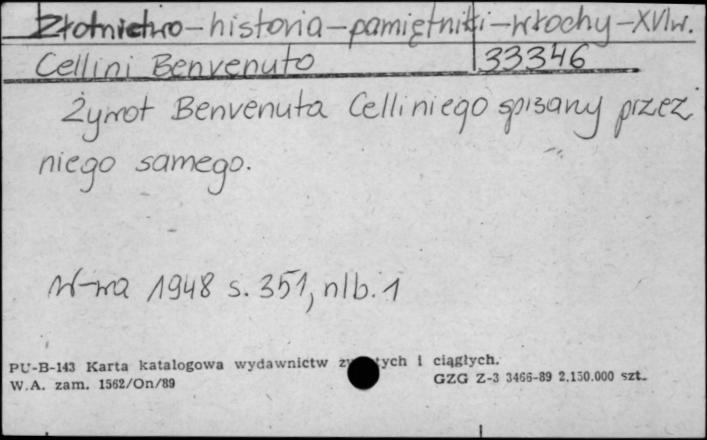 Złotnictwo - historia - pamiętniki - Włochy - XVIw.
Cellini Benvenuto 33346
Żywot Benvenuta Celliniego spisany przez
niego samego.
W-wa 1948 s. 351, nlb. 1
PU-B-143 Karta katalogowa wydawnictw zw tych i ciągłych.
W.A. zam. 1562/On/89 GZG Z-3 3466-89 2.150.000 szt.